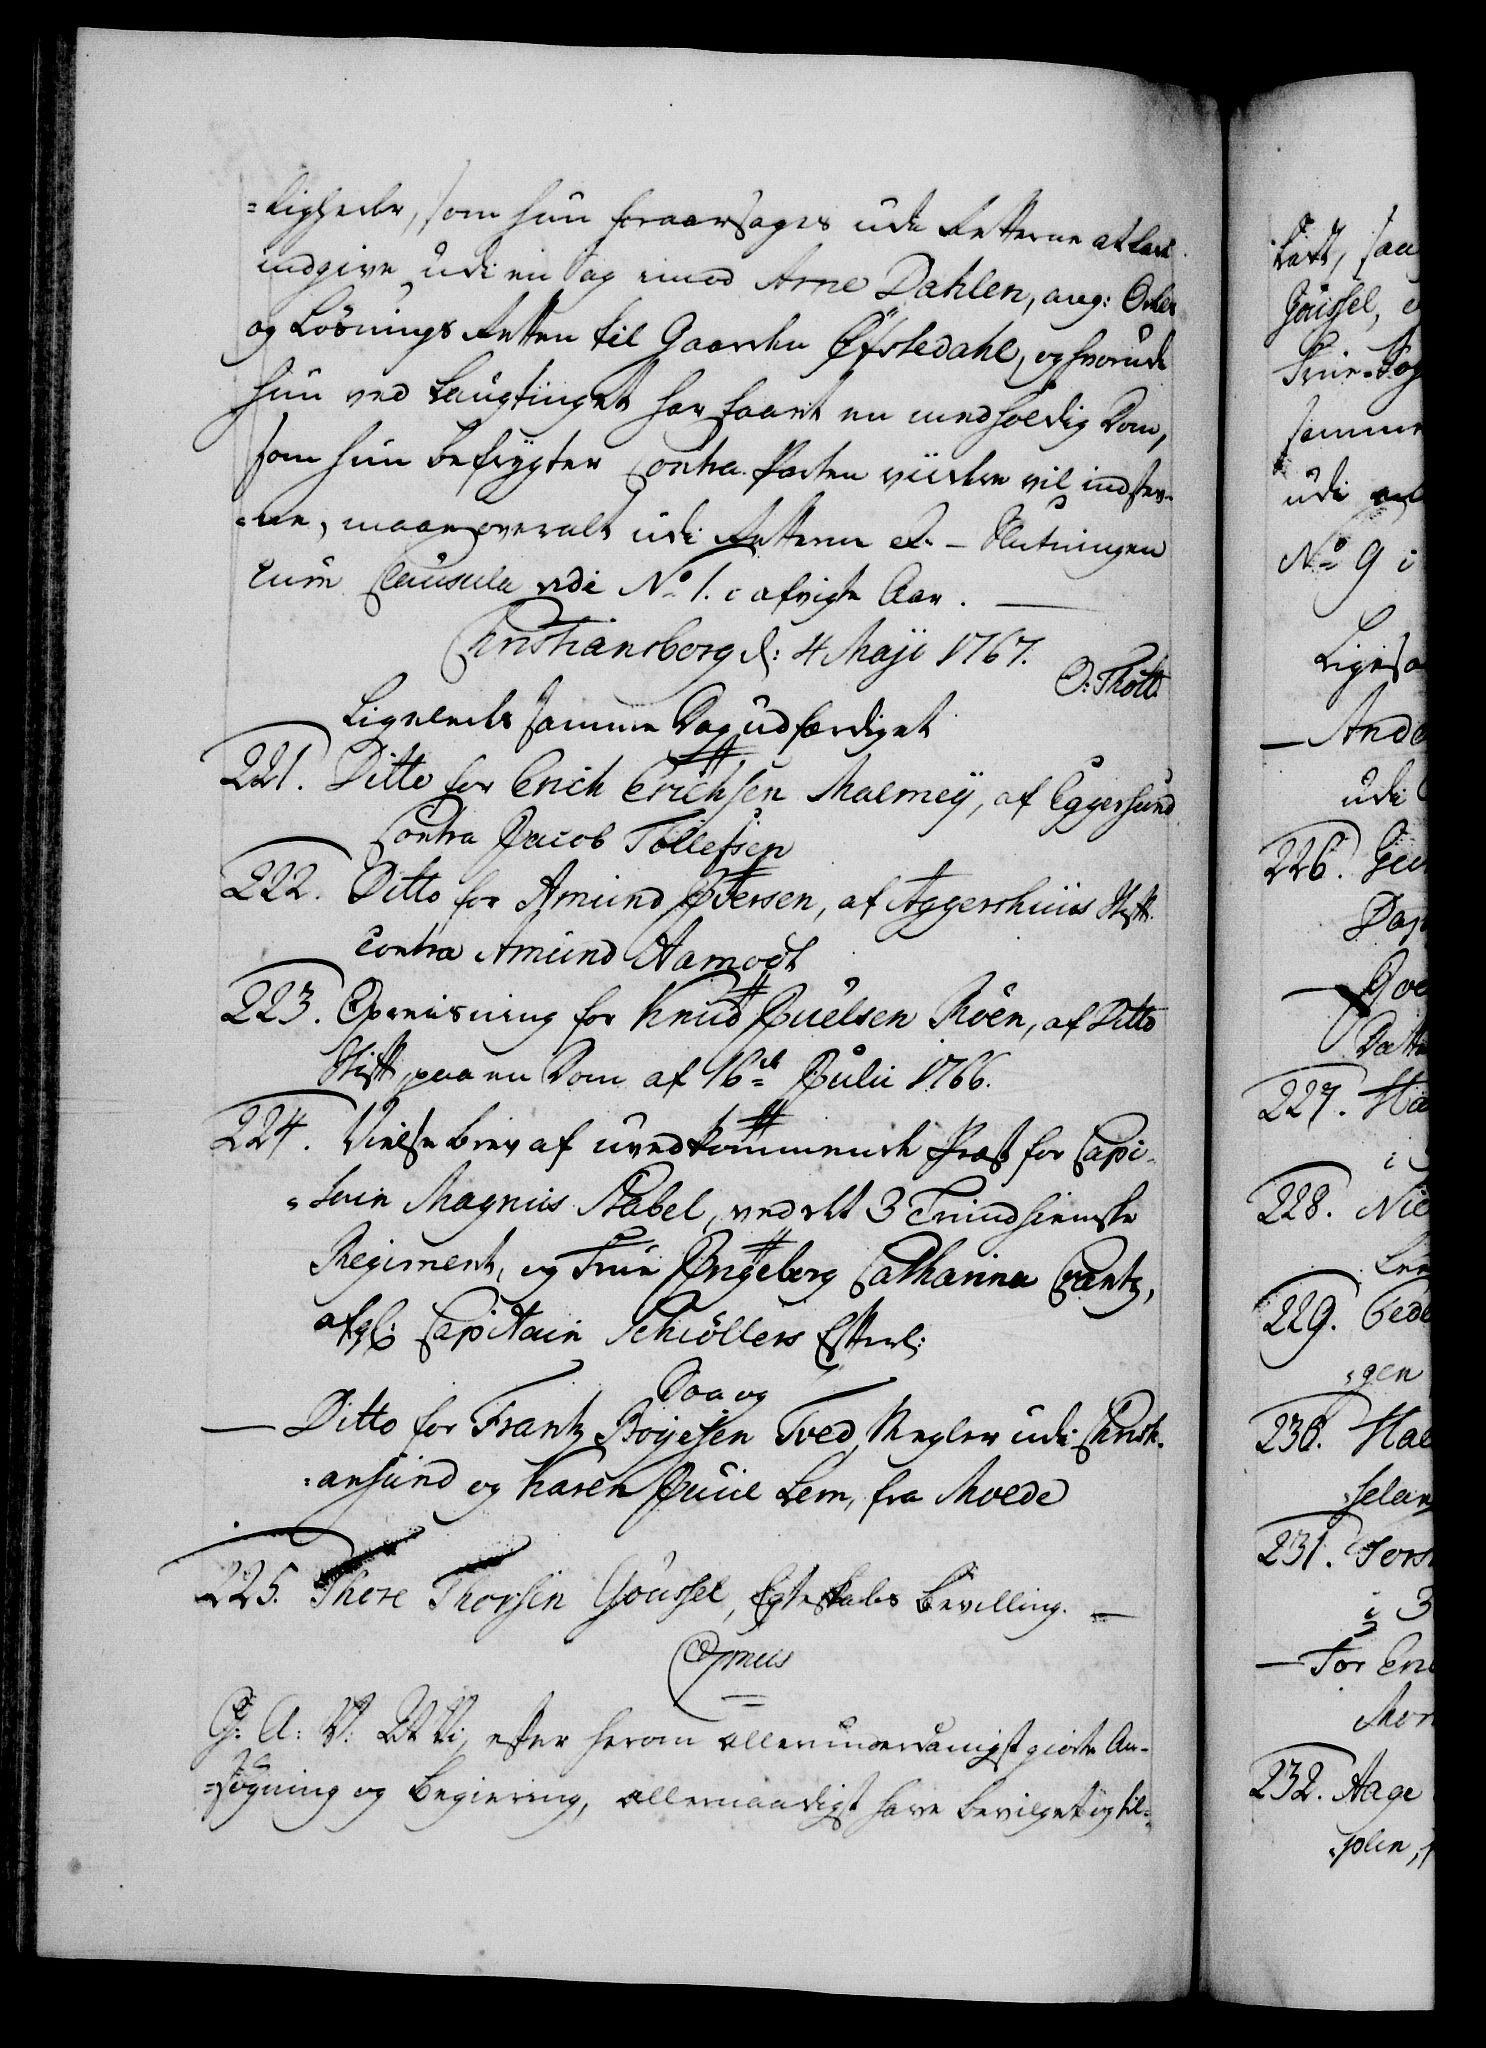 =ligheder, som hun foraarsages udi Retterne at lade
indgive udi en Sag imod Arne Dahlen, ang: Odels
og Løsnings Retten til Gaarden Øfstedahl, og hvorudi
hun ved Laugtinget har faaet en medholdig Dom,
som hun befrygter Contra-Parten videre vil indstev-
=ne, maae overalt udi Retterne &. – Slutningen
cum Clausula vide No 1. i afvigte Aar.
Christiansborg d: 4 Maji 1767.
O: Thott
Ligeledes samme Dag udfærdiget
221. Ditto for Erich Erichsen Malmey, af Eggersund
Contra Jacob Tollefsen
222. Ditto for Amund Ittersen, af Aggershuus Stift.
contra Amund Aamodt
223. Opreisning for Knud Juelsen Roen, af Ditto
Stift, paa en Dom af 16de Julii 1766.
224. Vielse brev af uvedkommende Præst for Capi-
=tain Magnus Stabel, ved det 3 Trundhiemske
Regiment, og Frue Ingeborg Catharina Crantz,
afgl: Capitain Schiøllers Efterl:
Daa og
— Ditto for Frantz Boyesen Tved, Megler udi Christi-
=ansund og Karen Juul Lem, fra Moede
225. Thore Thorsen Goussel, Egteskabs Bevilling. —
C7mus
G: A: V: At Vi, efter herom allerunderdanigst giorte An-
=søgning og Begiering, allernaadigst have bevilget og til-
=ladt, saa
Goussel, e
Frue-Sog
samme
udi
No 9 i
Ligesaa
— Ande
udi
226. Gun
Dah
—
Datt
227. Ha
i
228. Nie
Lee
229. Pede
=gen
230. Hal
=selan
231. Tors
i 3
— For Eri
Mor
232. Aage
=plin,